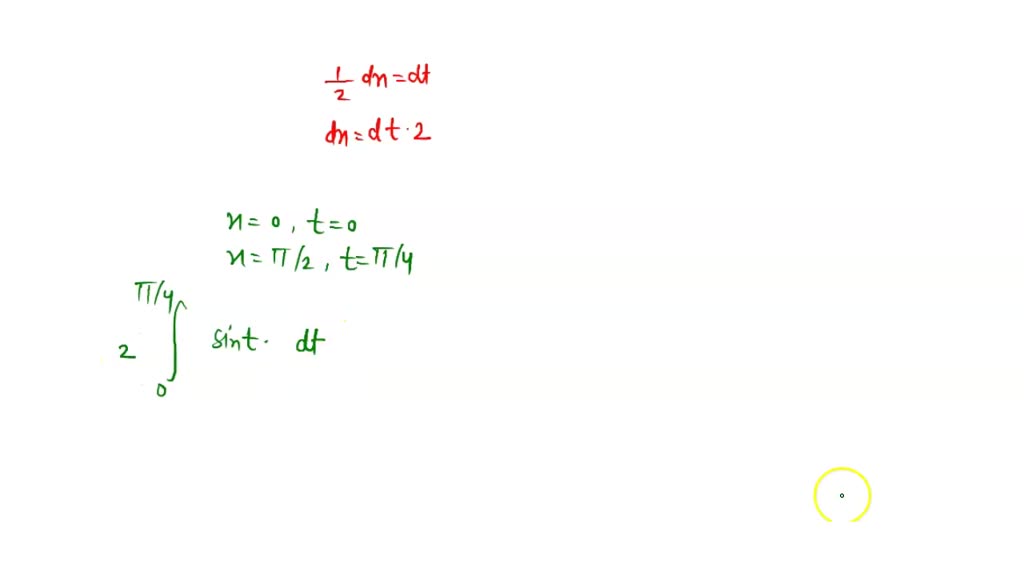 1/2 dx = dt
dx = dt · 2
x = 0, t = 0
x = π/2, t = π/4
2 ∫₀^{π/4} sin t · dt